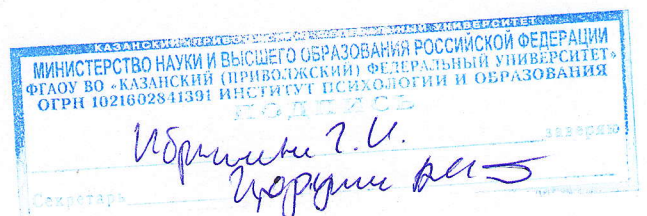 КАЗАНСКИЙ (ПРИВОЛЖСКИЙ) ФЕДЕРАЛЬНЫЙ УНИВЕРСИТЕТ
МИНИСТЕРСТВО НАУКИ И ВЫСШЕГО ОБРАЗОВАНИЯ РОССИЙСКОЙ ФЕДЕРАЦИИ
ФГАОУ ВО «КАЗАНСКИЙ (ПРИВОЛЖСКИЙ) ФЕДЕРАЛЬНЫЙ УНИВЕРСИТЕТ»
ОГРН 1021602841391 ИНСТИТУТ ПСИХОЛОГИИ И ОБРАЗОВАНИЯ
ПОДПИСЬ
Г. И.
заверяю
Секретарь